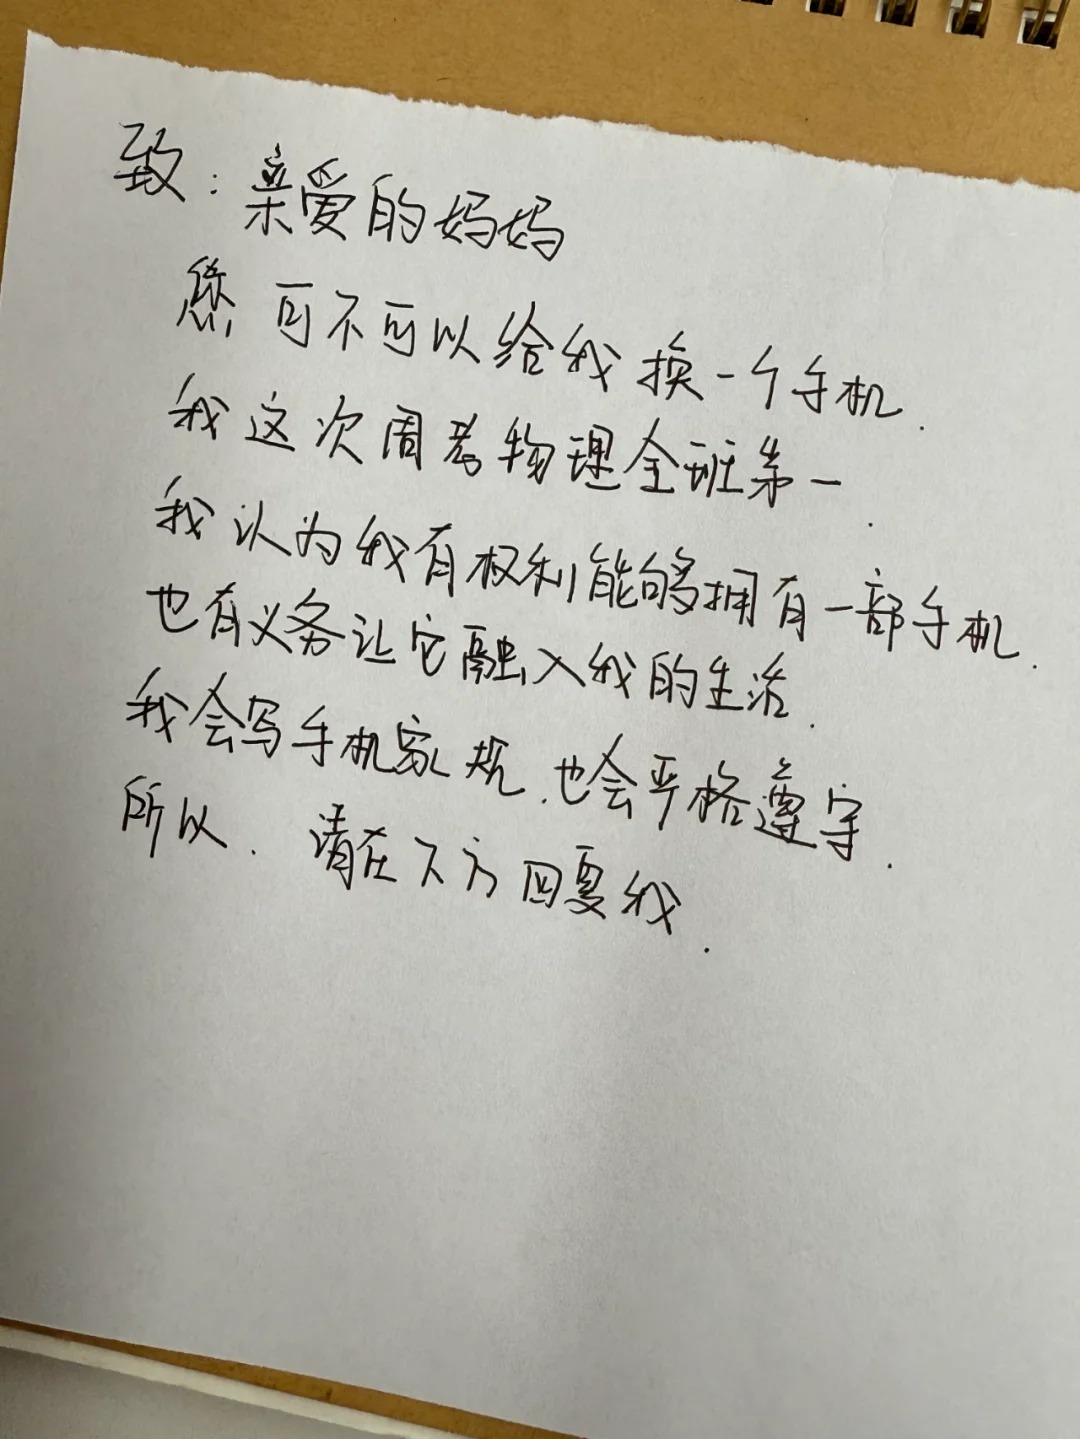 致：亲爱的妈妈
您可不可以给我换一个手机.
我这次周考物理全班第一.
我认为我有权利能够拥有一部手机.
也有义务让它融入我的生活.
我会写手机家规.也会严格遵守.
所以.请在下方回复我.